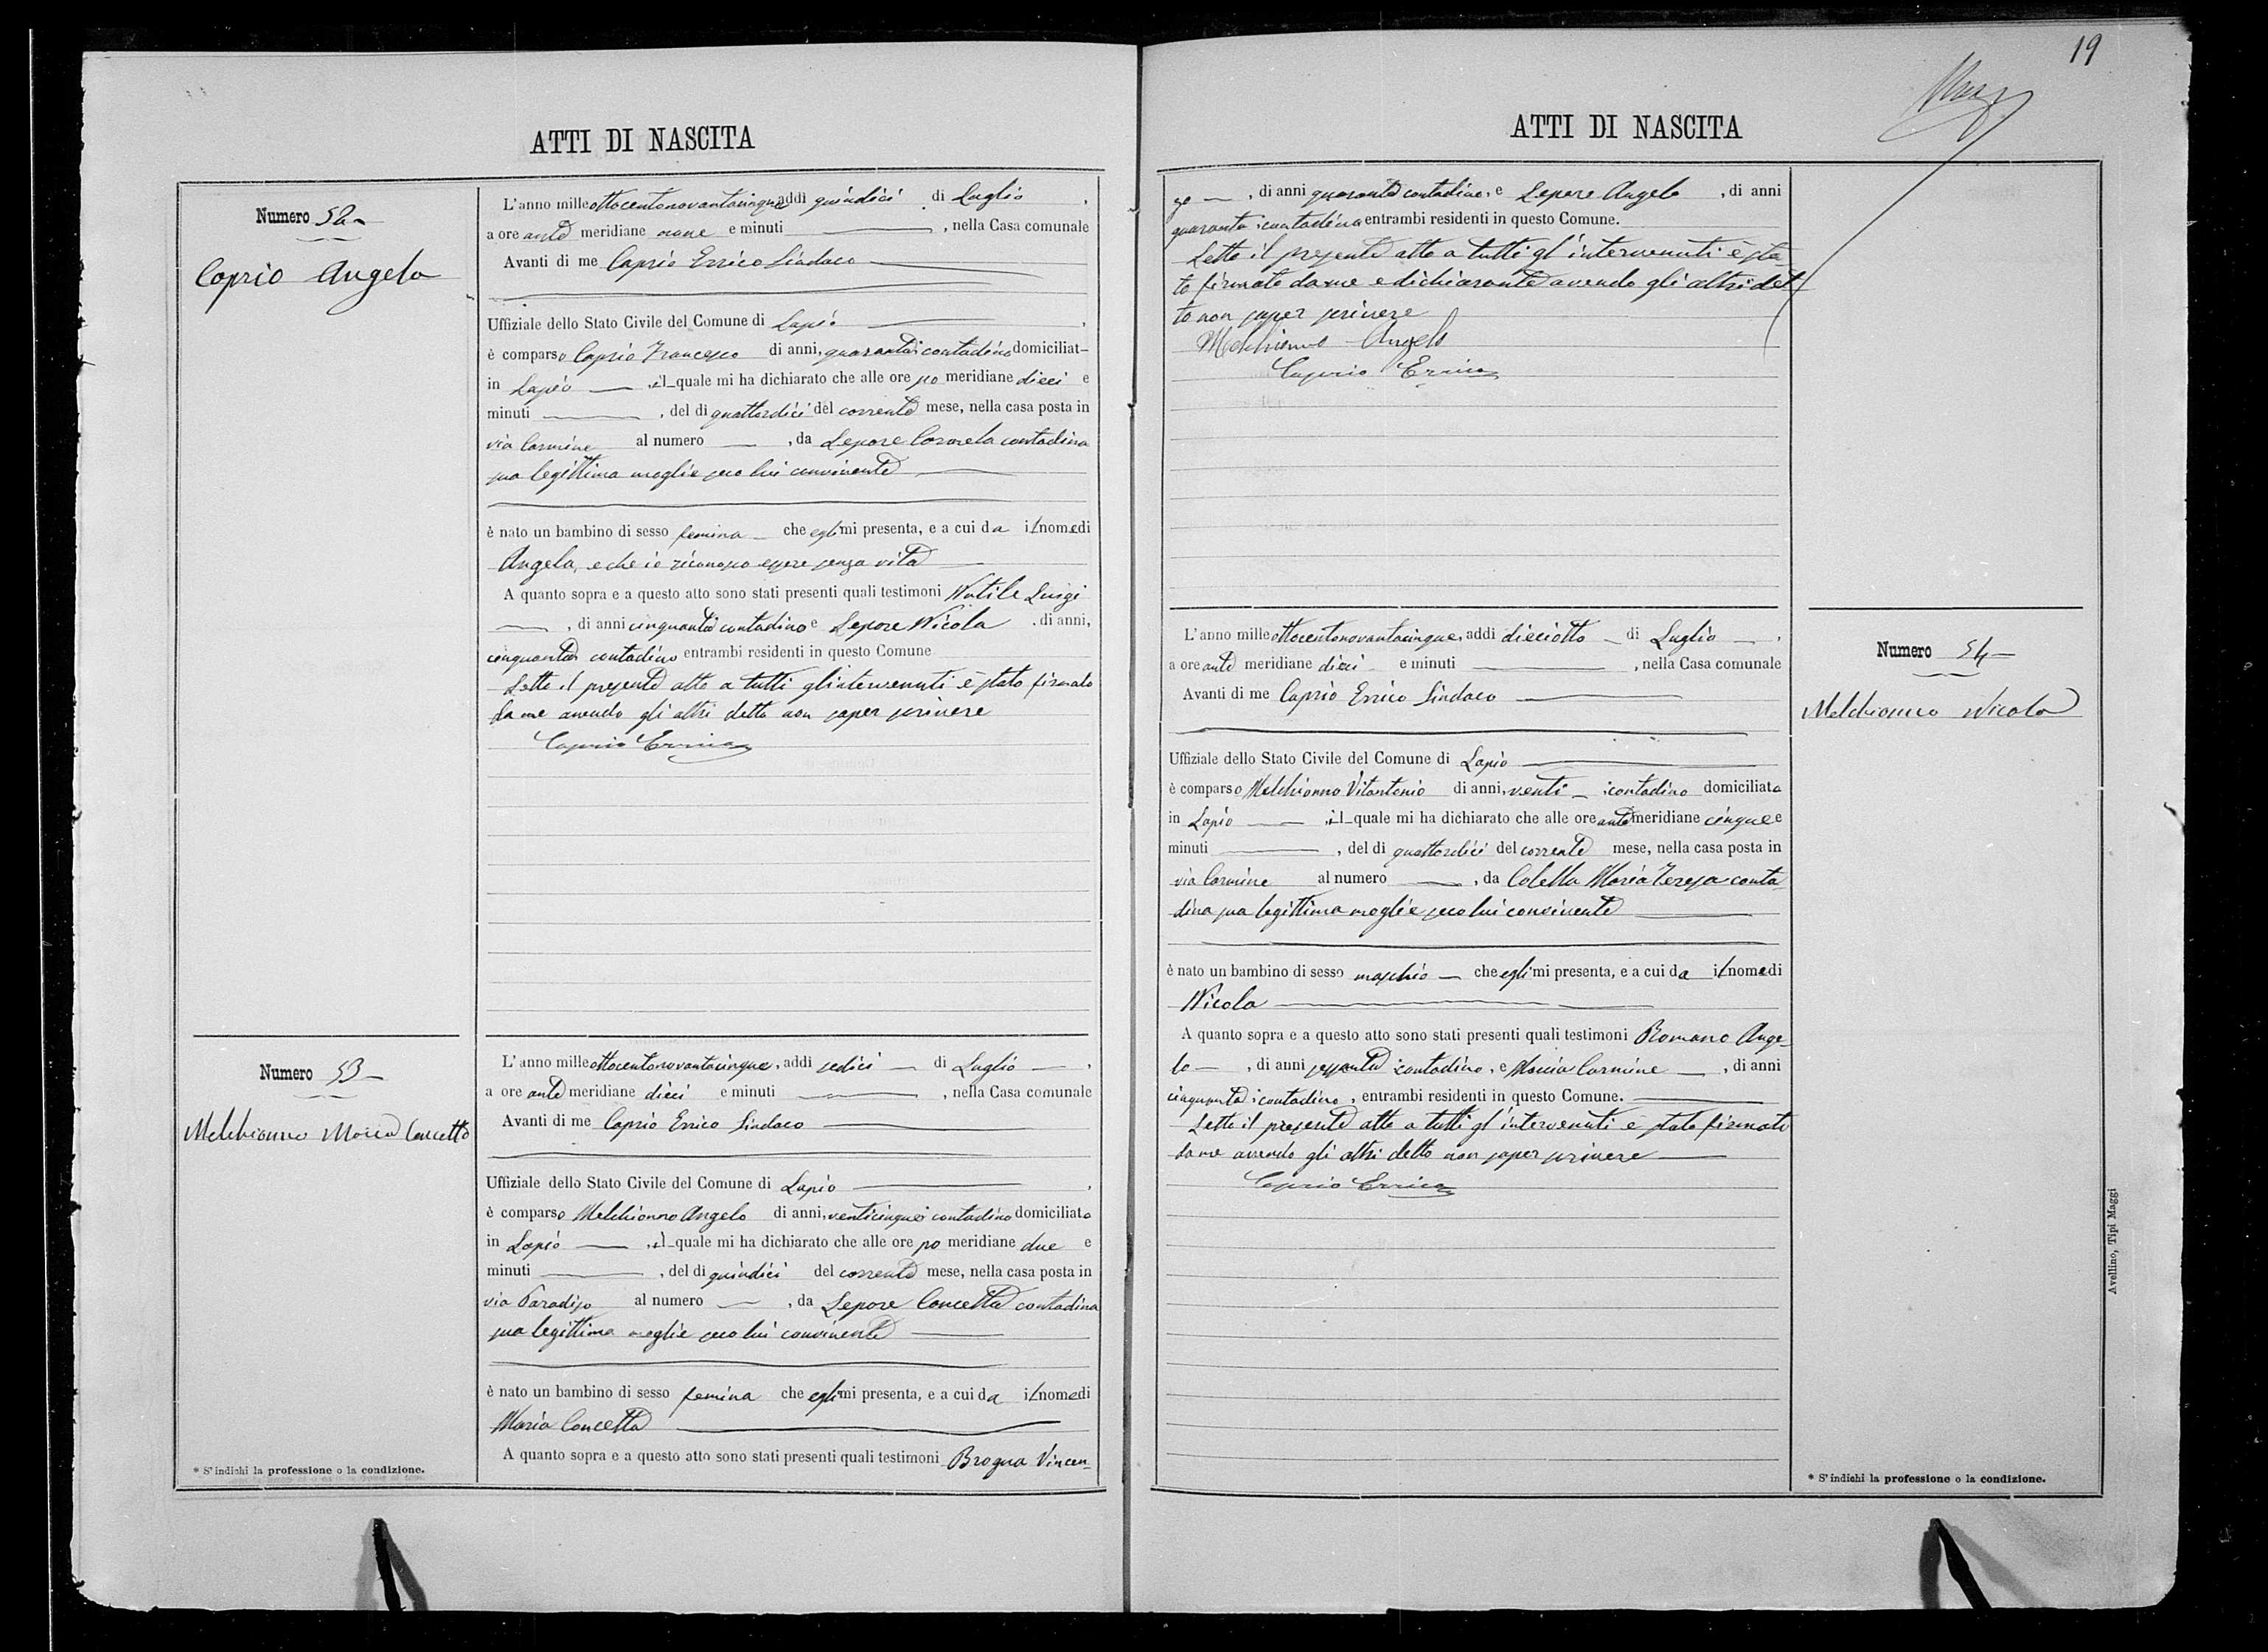 ATTI DI NASCITA
Numero 52
Caprio Angela
L'anno mille ottocentonovantacinque addi quindici di Luglio,
a ore ante meridiane nove e minuti, nella Casa comunale
Avanti di me Caprio Errico Sindaco
Uffiziale dello Stato Civile del Comune di Lapio,
è comparso Caprio Francesco di anni, quaranta contadino domiciliat-
in Lapio, il quale mi ha dichiarato che alle ore po meridiane dieci e
minuti, del di quattordici del corrente mese, nella casa posta in
via Carmine al numero, da Lepore Carmela contadina
sua legittima moglie seco lui convivente
è nato un bambino di sesso femina che egli mi presenta, e a cui da il nome di
Angela, e che io riconosco essere senza vita
A quanto sopra e a questo atto sono stati presenti quali testimoni Natile Luigi
, di anni cinquanta contadino e Lepore Nicola, di anni,
cinquanta contadino entrambi residenti in questo Comune
Letto il presente atto a tutti gl'intervenuti è stato firmato
da me avendo gli altri detto non saper scrivere
Caprio Errico
Numero 53
Melchionno Maria Concetta
L'anno mille ottocentonovantacinque, addi sedici di Luglio,
a ore ante meridiane dieci e minuti, nella Casa comunale
Avanti di me Caprio Errico Sindaco
Uffiziale dello Stato Civile del Comune di Lapio,
è comparso Melchionno Angelo di anni, venticinque contadino domiciliato
in Lapio, il quale mi ha dichiarato che alle ore po meridiane due e
minuti, del di quindici del corrente mese, nella casa posta in
via Paradiso al numero, da Lepore Concetta contadina
sua legittima moglie seco lui convivente
è nato un bambino di sesso femina che egli mi presenta, e a cui da il nome di
Maria Concetta
A quanto sopra e a questo atto sono stati presenti quali testimoni Brogna Vincen-
* S'indichi la professione o la condizione.
19
ATTI DI NASCITA
zo, di anni quaranta contadino, e Lepore Angelo, di anni
quaranta, contadino entrambi residenti in questo Comune.
Letto il presente atto a tutti gl'intervenuti è sta-
to firmato da me e dichiarante avendo gli altri det-
to non saper scrivere
Melchionno Angelo
Caprio Errico
Numero 54
Melchionno Nicola
L'anno mille ottocentonovantacinque, addi dieciotto di Luglio,
a ore ante meridiane dieci e minuti, nella Casa comunale
Avanti di me Caprio Errico Sindaco
Uffiziale dello Stato Civile del Comune di Lapio
è comparso Melchionno Vitantonio di anni, venti, contadino domiciliato
in Lapio, il quale mi ha dichiarato che alle ore ante meridiane cinque e
minuti, del di quattordici del corrente mese, nella casa posta in
via Carmine al numero, da Colella Maria Teresa conta-
dina sua legittima moglie seco lui convivente
è nato un bambino di sesso maschio che egli mi presenta, e a cui da il nome di
Nicola
A quanto sopra e a questo atto sono stati presenti quali testimoni Romano Ange-
lo, di anni sessanta contadino, e Carmine, di anni
cinquanta, contadino, entrambi residenti in questo Comune.
Letto il presente atto a tutti gl'intervenuti è stato firmato
da me avendo gli altri detto non saper scrivere
Caprio Errico
* S'indichi la professione o la condizione.
Avellino, Tipi Maggi